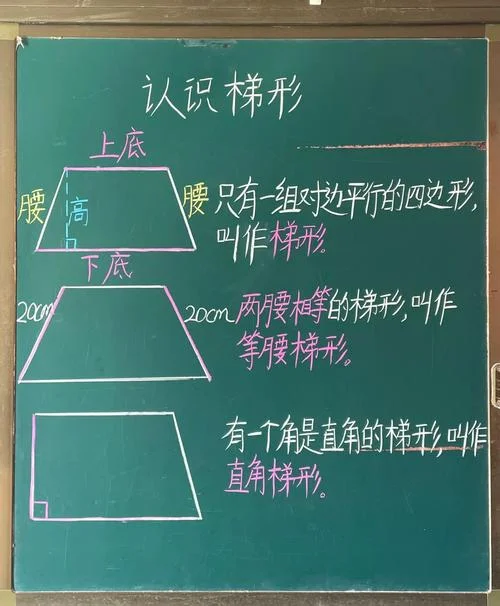 认识梯形
上底
腰
高
腰
只有一组对边平行的四边形,
叫作梯形。
下底
20cm
20cm
两腰相等的梯形,叫作
等腰梯形。
有一个角是直角的梯形,叫作
直角梯形。